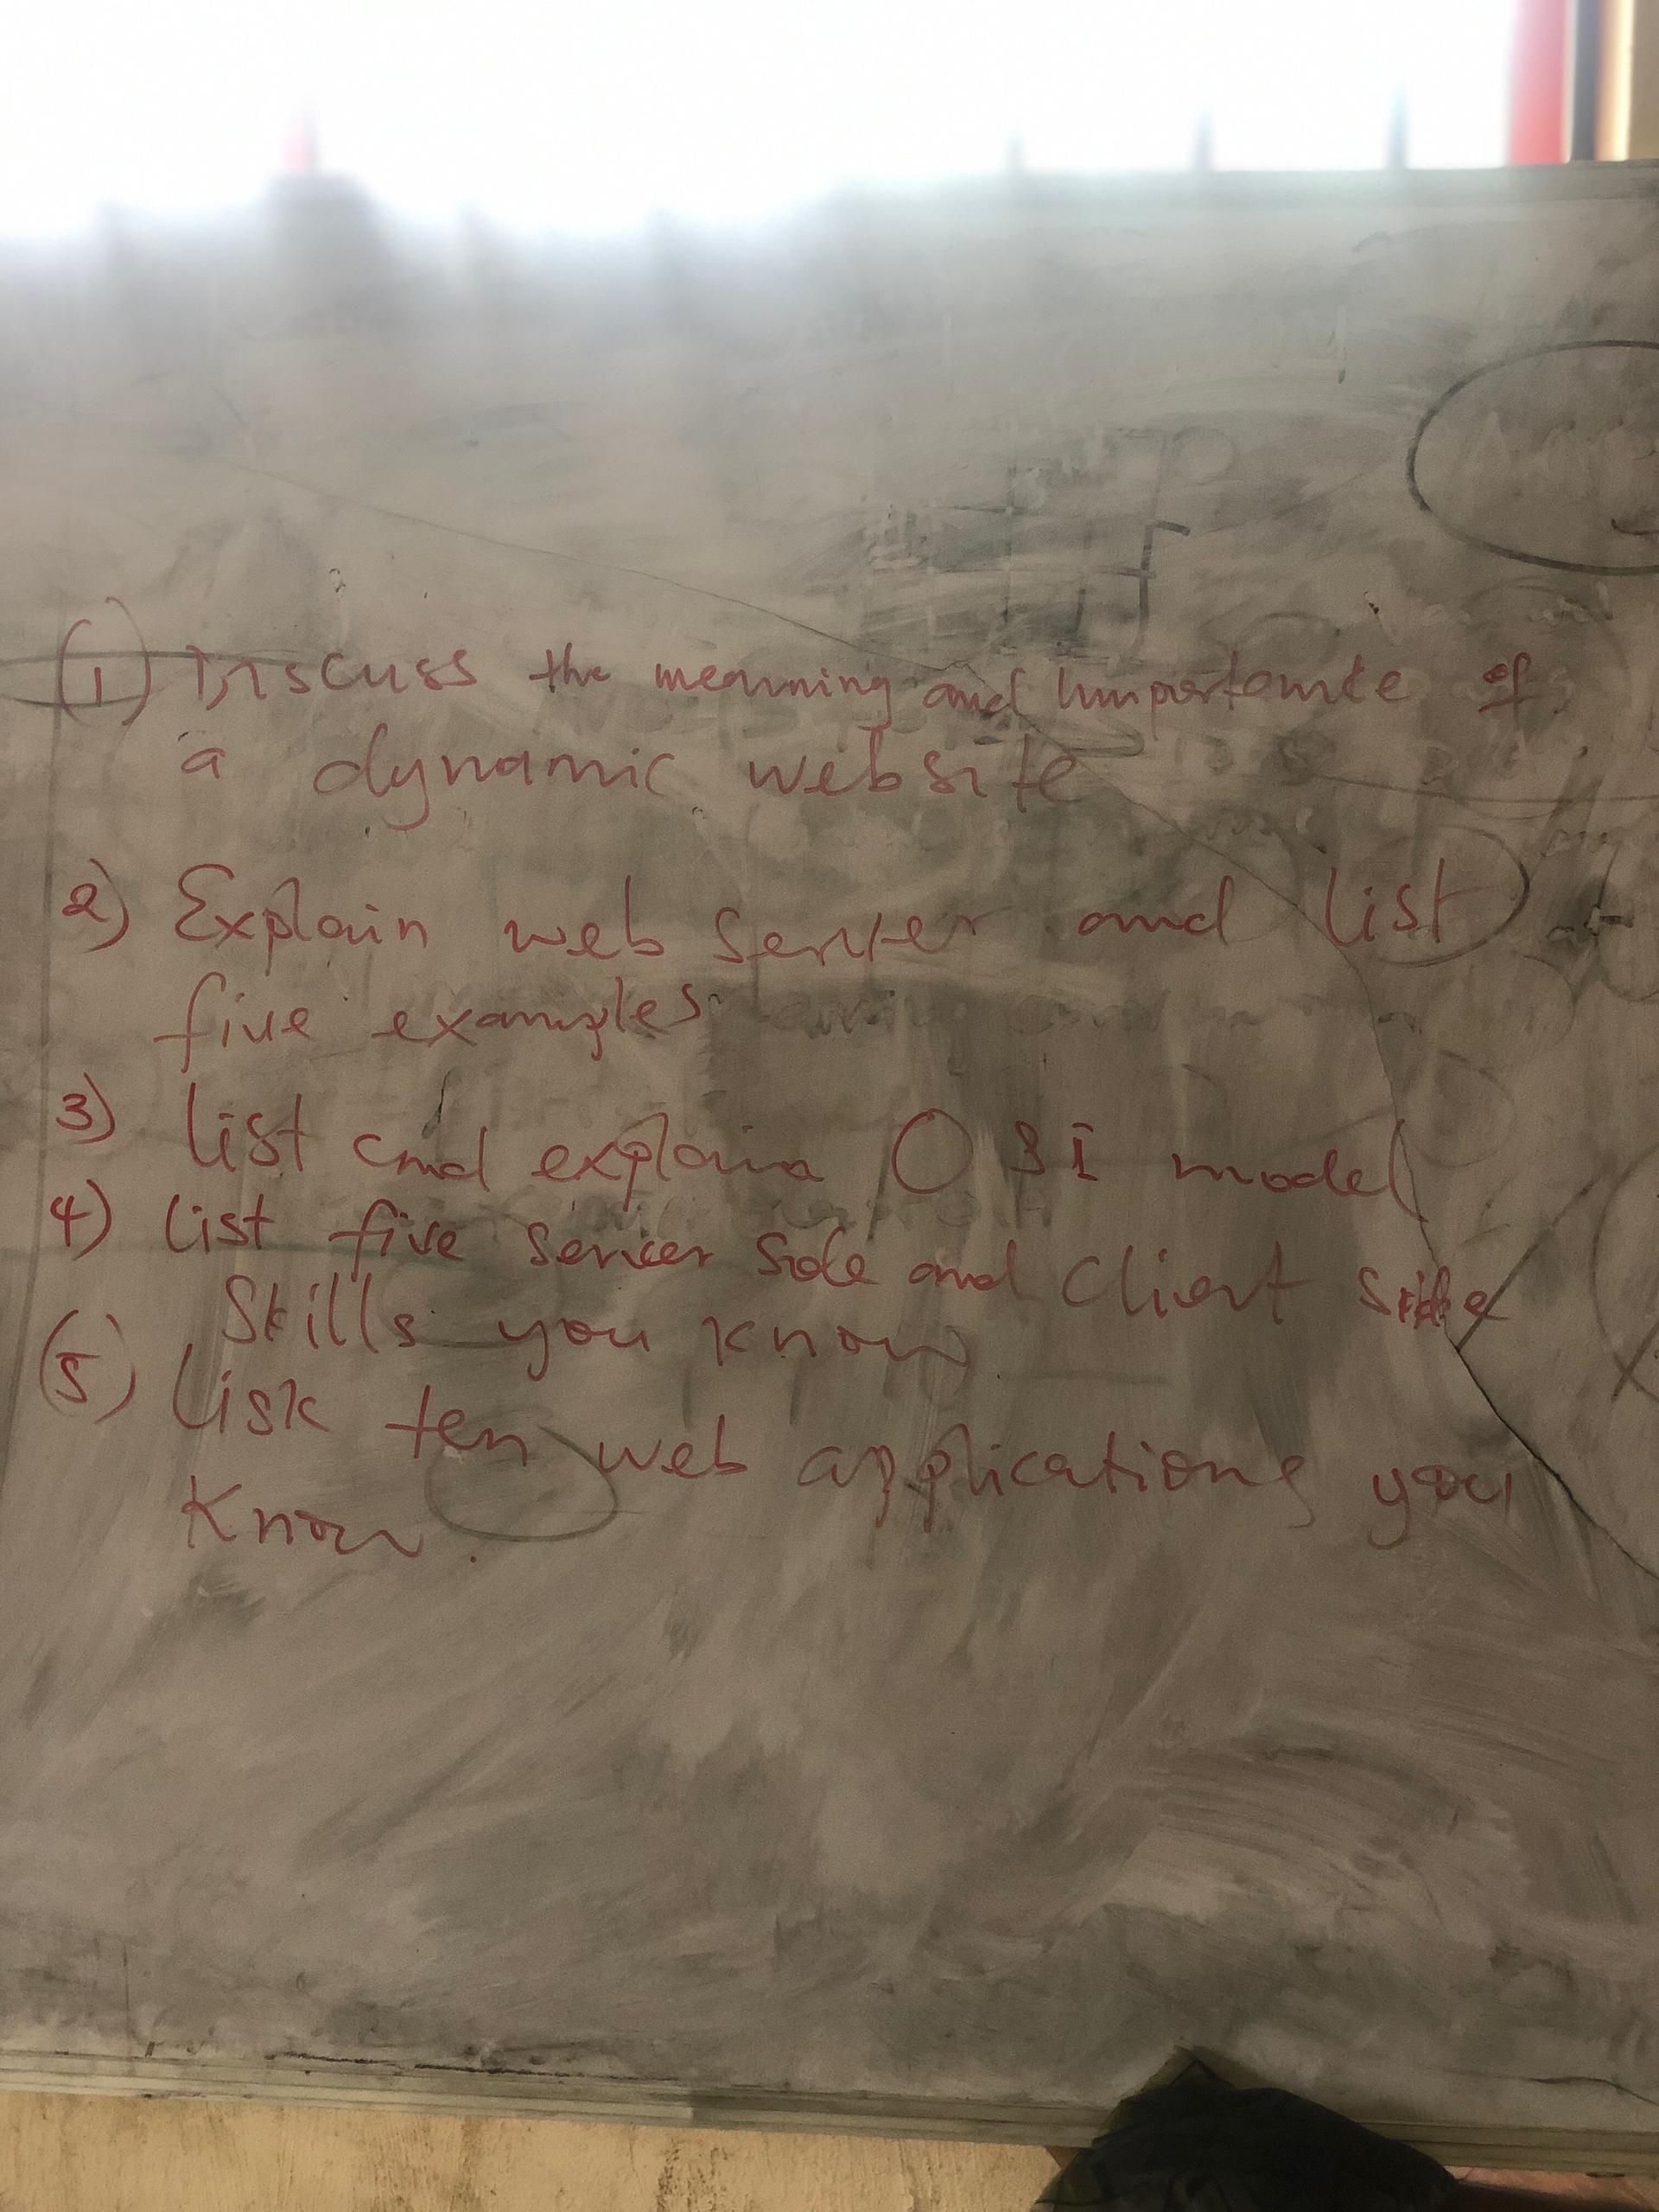 (1) Discuss the meaning and importance of
a dynamic website
2) Explain web server and list
five examples
3) list and explain OSI model
4) list five server side and Client side
Skills you know
(5) List ten web applications you
Know.